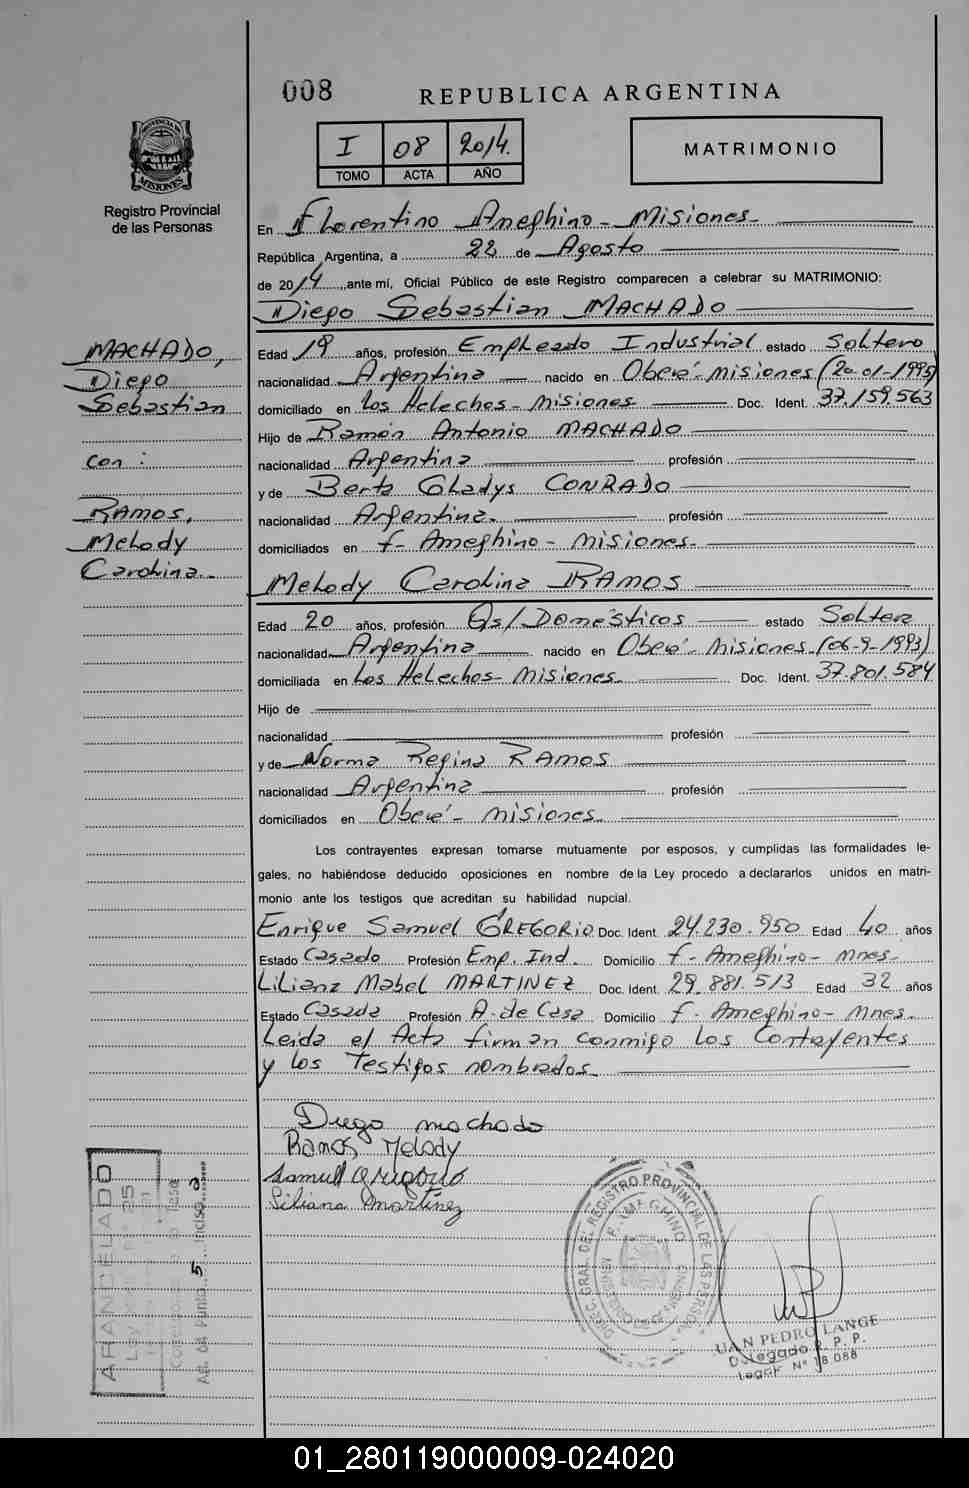 008
REPUBLICA ARGENTINA
I 08 2014.
TOMO ACTA AÑO
MATRIMONIO
PROVINCIA DE
MISIONES
Registro Provincial
de las Personas
En Florentino Ameghino - Misiones
República Argentina, a 22 de Agosto
de 2014, ante mí, Oficial Público de este Registro comparecen a celebrar su MATRIMONIO:
Diego Sebastian MACHADO
MACHADO,
Diego
Sebastian
con:
RAMOS,
Melody
Carolina
Edad 19 años, profesión Empleado Industrial estado Soltero
nacionalidad Argentina nacido en Oberá - Misiones (20-01-1995)
domiciliado en Los Helechos - Misiones Doc. Ident. 37.159.563
Hijo de Ramón Antonio MACHADO
nacionalidad Argentina profesión
y de Berta Gladys CONRADO
nacionalidad Argentina profesión
domiciliados en f- Ameghino - Misiones
Melody Carolina RAMOS
Edad 20 años, profesión Qs/Domésticos estado Soltera
nacionalidad Argentina nacido en Oberá - Misiones (06-9-1993)
domiciliada en Los Helechos - Misiones Doc. Ident. 37.801.584
Hijo de
nacionalidad profesión
y de Norma Regina RAMOS
nacionalidad Argentina profesión
domiciliados en Oberá - Misiones
Los contrayentes expresan tomarse mutuamente por esposos, y cumplidas las formalidades le-
gales, no habiéndose deducido oposiciones en nombre de la Ley procedo a declararlos unidos en matri-
monio ante los testigos que acreditan su habilidad nupcial.
Enrique Samuel GREGORIO Doc. Ident. 24.230.950 Edad 40 años
Estado Casado Profesión Emp. Ind. Domicilio f- Ameghino - Mnes.
Liliana Mabel MARTINEZ Doc. Ident. 29.881.513 Edad 32 años
Estado Casada Profesión A. de Casa Domicilio f. Ameghino - Mnes.
Leida el Acta firman conmigo los Contayentes
y los Testigos nombrados
Diego machado
Ramos Melody
Samuel Gregorio
Liliana Martinez
ARANDELADO
Ley N° 25
Art. 04 punto 5 inciso a
DIREC. GRAL. DEL REGISTRO PROVINCIAL DE LAS PERSONAS
F. AMEGHINO
JUAN PEDRO LANGE
Delegado R. P. P.
Legajo N° 16 088
01_280119000009-024020